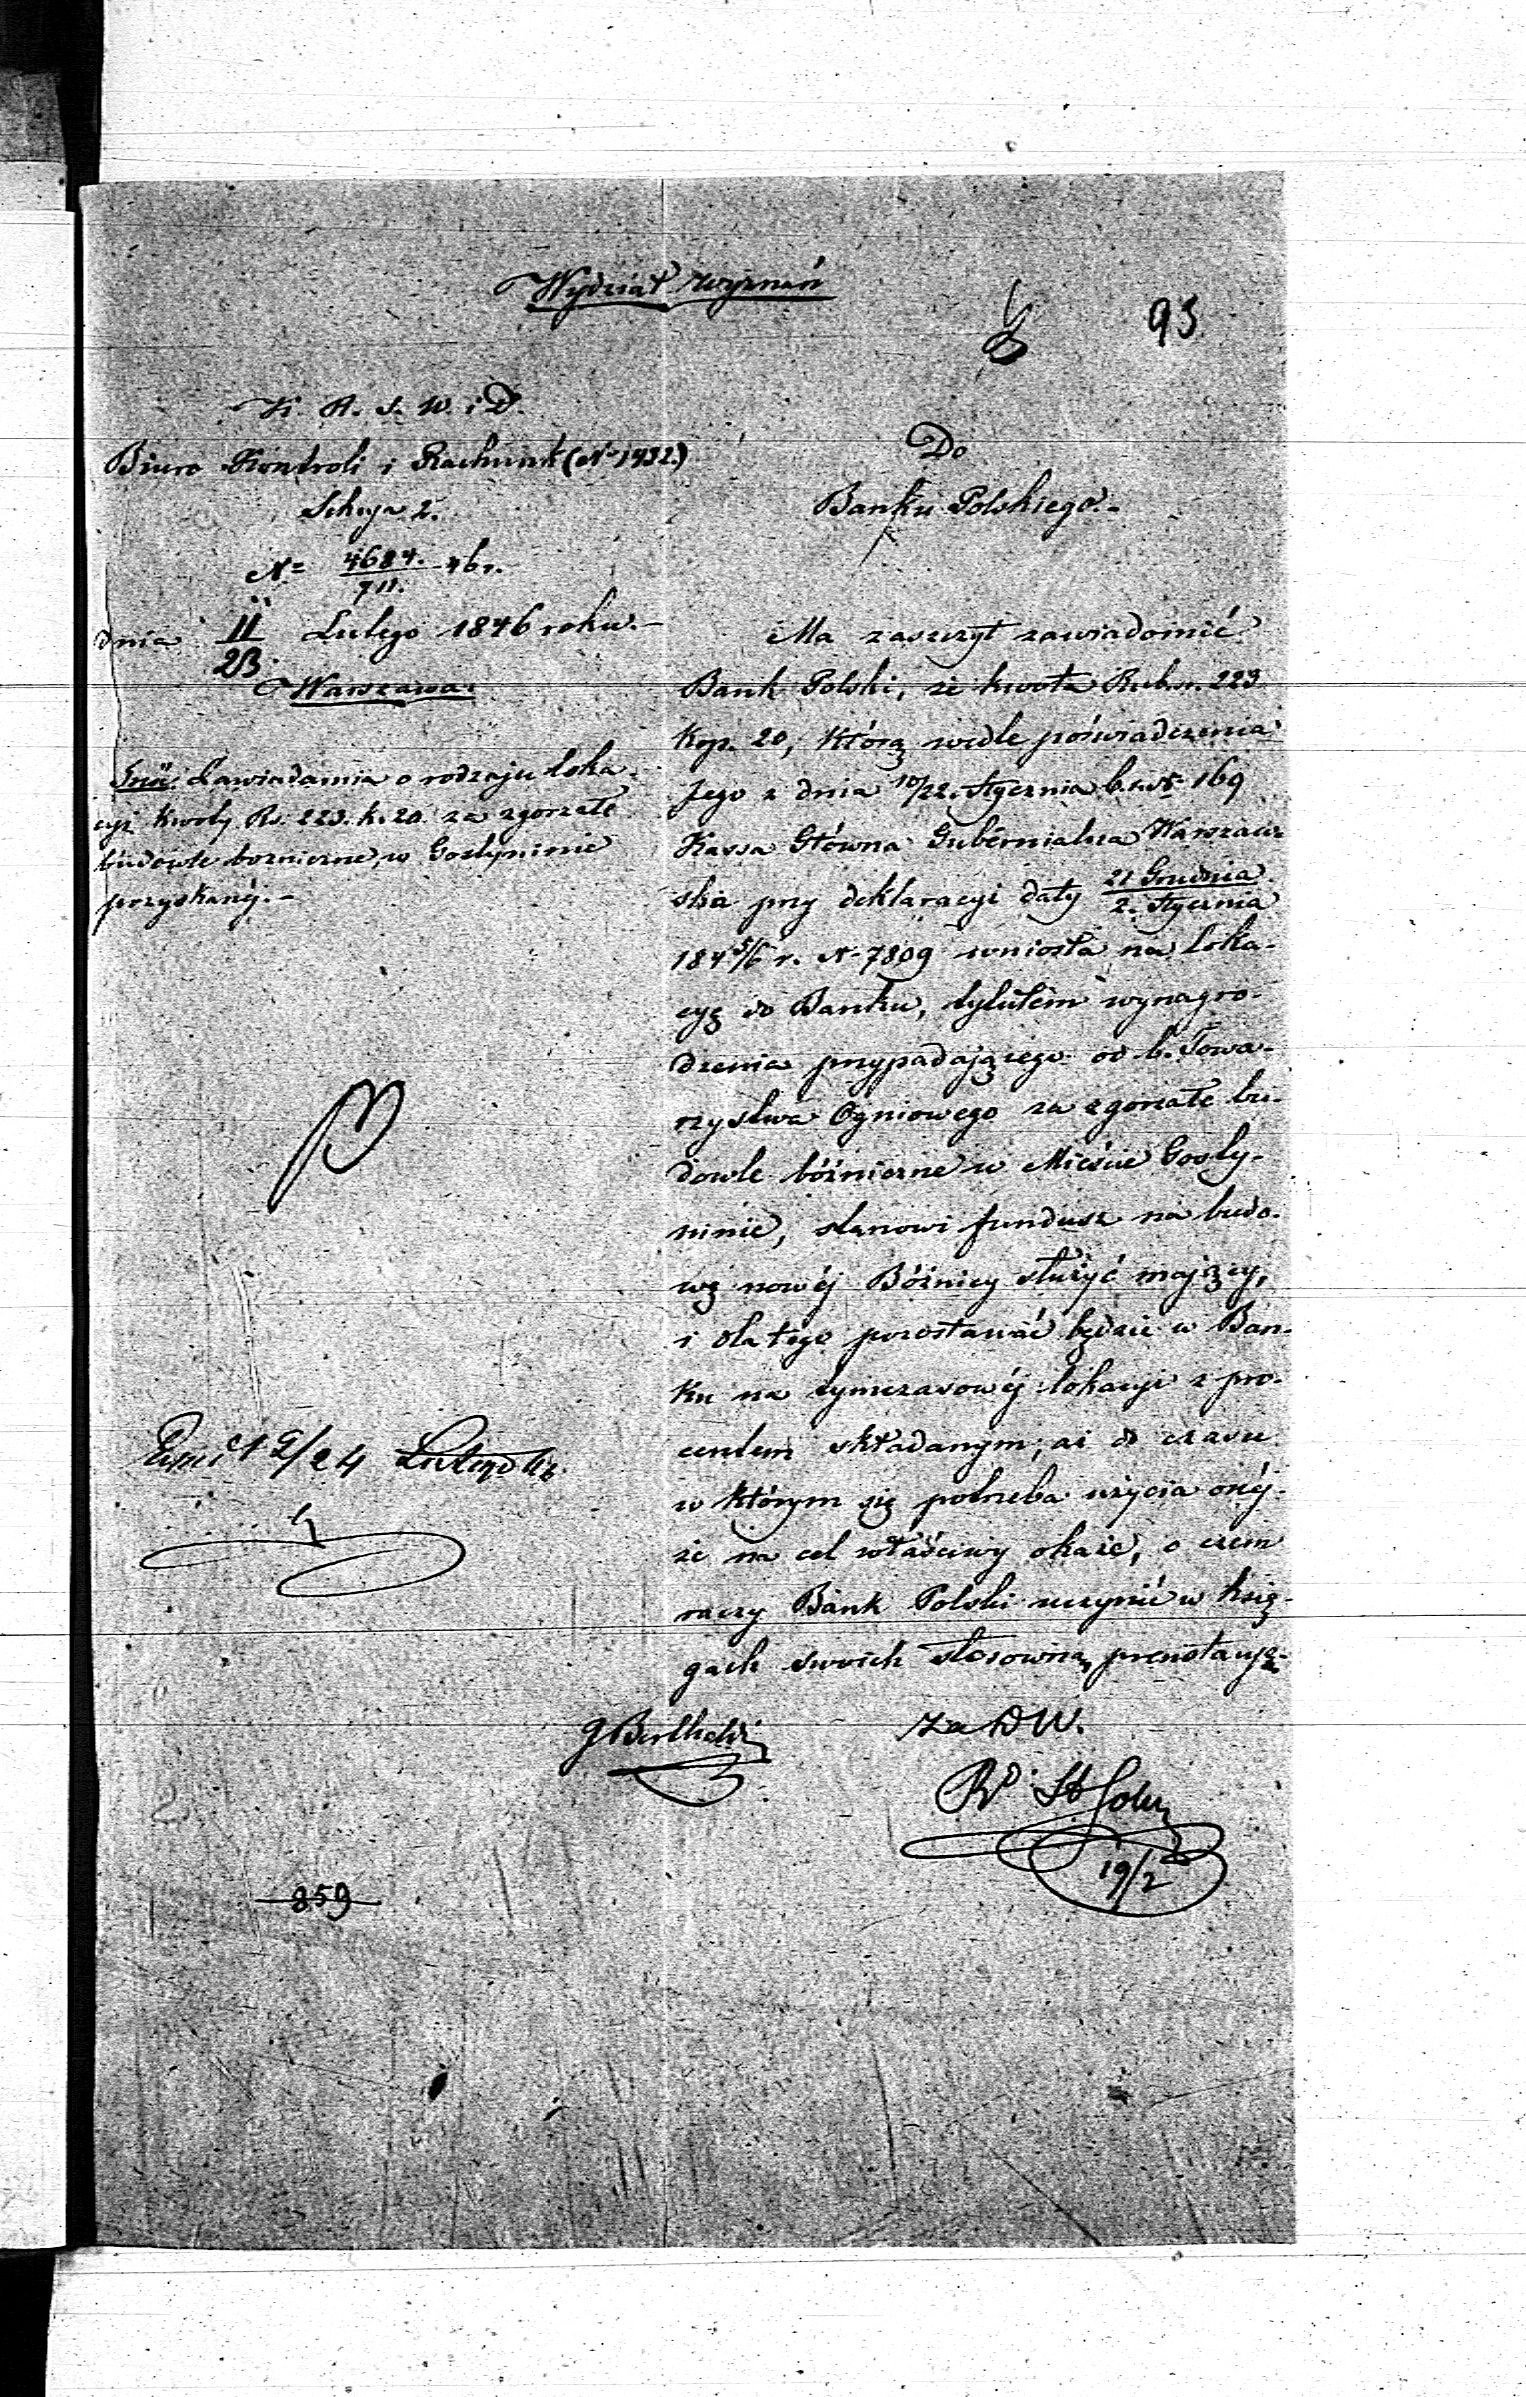 Wydział wyznań
93
K. R. S. W. i D.
Biuro Kontroli i Rachunk (N 1432.)
Sekcya 2.
N= 4684./711. 46 r.
dnia 11/23 Lutego 1846 roku.-
Warszawa.
Treść: Zawiadamia o rodzaju loka-
cyi kwoty Rs. 223. k. 20 za zgorzałe
budowle bożnicze w Gostyninie
pozyskanéj.-
Do
Banku Polskiego.-
Ma zaszczyt zawiadomić
Bank Polski, że kwota Rub. sr. 223
Kop. 20, którą wedle poświadczenia
Jego z dnia 10/22. Stycznia b. r. N 169
Kassa Główna Gubernialna Warszaw-
ska przy deklaracyi daty 21 Grudnia/2. Stycznia
184 5/6 r. N 7809 wniosła na Loka-
cyę do Banku, tytułem wynagro-
dzenia przypadającego od b. Towa-
rzystwa Ogniowego za zgorzałe bu-
dowle bóżnicze w Mieście Gosty-
ninie, stanowi fundusz na budo-
wę nowéj Bóżnicy służyć mający,
i dla tego pozostawać będzie w Ban-
ku na tymczasowéj lokacyi z pro-
centem składanym, aż do czasu
w którym się potrzeba użycia onéj-
że na cel właściwy okaże, o czem
raczy Bank Polski uczynić w księ-
gach swoich stosowną prenotacyę.-
12/24 Lutego
Za DW.
19/2
859